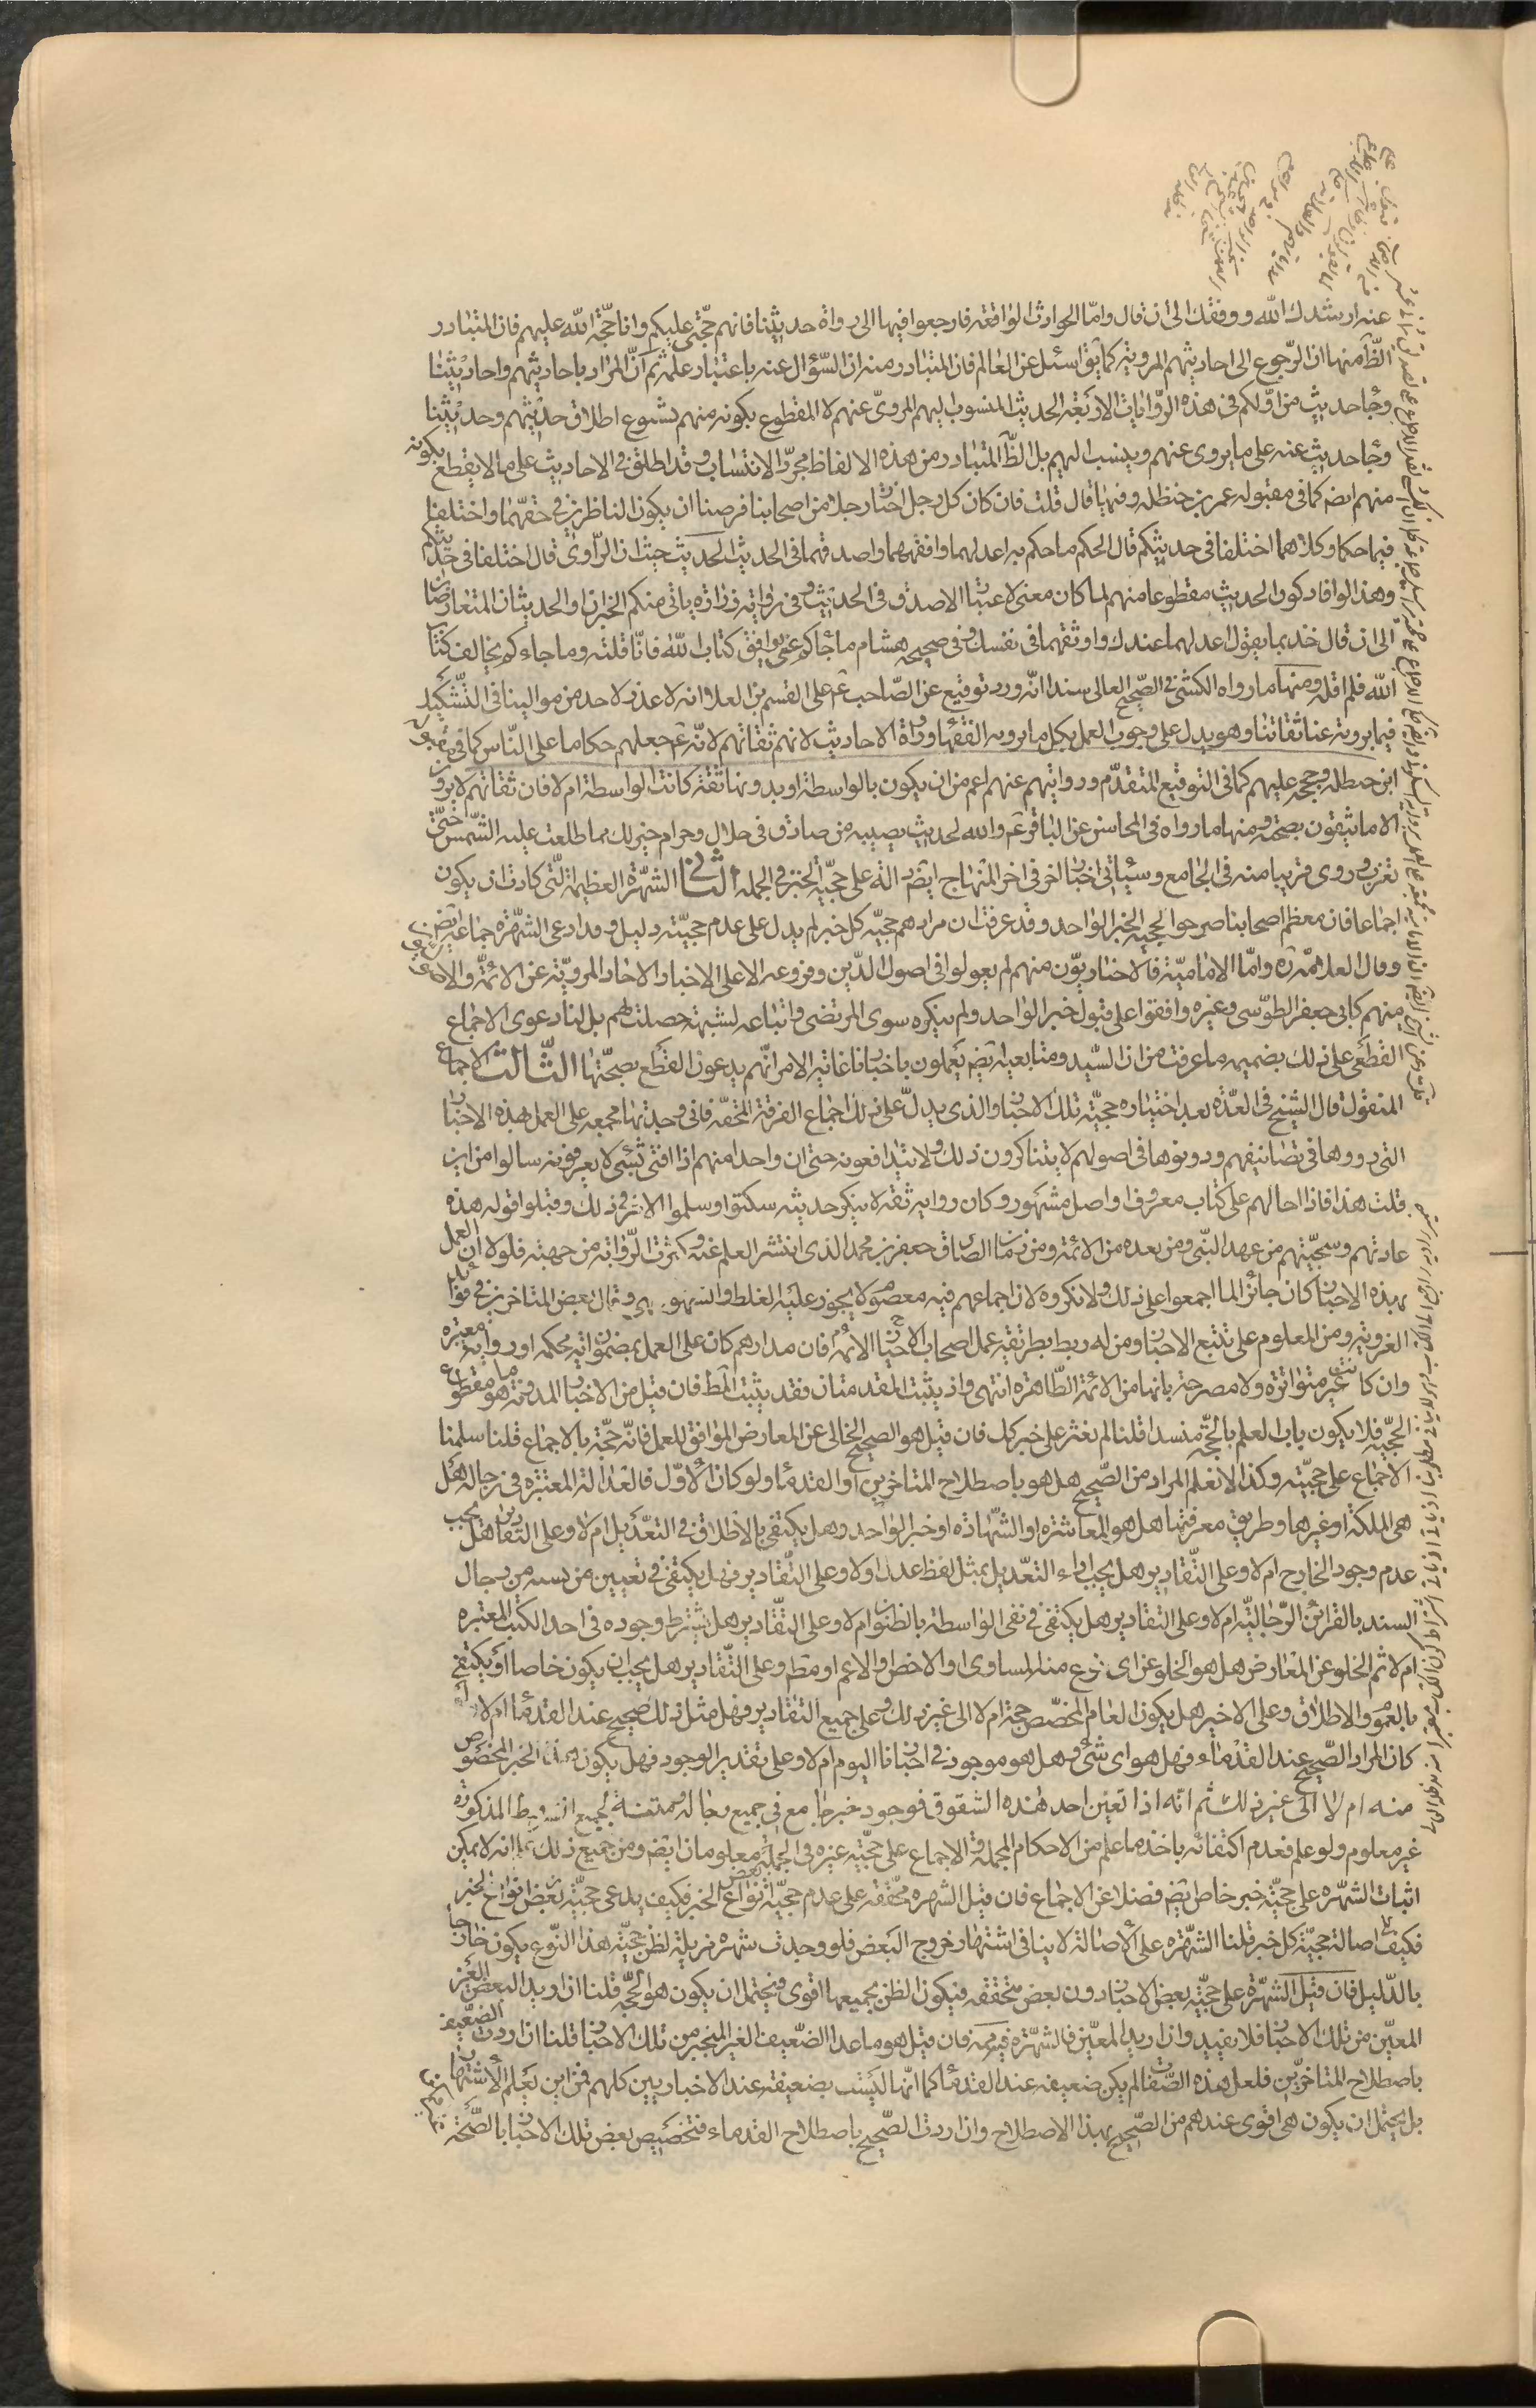 عنه ارشدك الله ووفقك الى ان قال واما الحوادث الواقعة فارجعوا فيها الى رواة حديثنا فانهم حجتى عليكم وانا حجة الله عليهم فان المتبادر
الظ منها ان الرجوع الى احاديثهم المروية كما يق اسئل عن العالم فان المتبادر منه ان السؤال عنه باعتبار علمه ثم ان المراد باحاديثهم واحاديثنا
وجاء حديث من اولكم فى هذه الروايات الاربعة الحديث المنسوب اليهم المروى عنهم لا المقطوع بكونه منهم لشيوع اطلاق حديثهم وحديثنا
وجاء حديث عنه على ما يروى عنهم وينسب اليهم بل الظ المتبادر من هذه الالفاظ مجرد الانتساب وقد اطلق فى الاحاديث على ما لا يقطع بكونه
منهم ايضا كما فى مقبولة عمر بن حنظلة وفيها قال قلت فان كان كل رجل اختار رجلا من اصحابنا فرضيا ان يكون الناظرين فى حقهما واختلفا
فيما حكما وكلاهما اختلفا فى حديثكم قال الحكم ما حكم به اعدلهما وافقههما واصدقهما فى الحديث الحديث حيث ان الراوى قال اختلفا فى حديثكم
وهذا لو افاد كون الحديث مقطوعا منهم لما كان معنى لاعتبار الاصدق فى الحديث وفى رواية زرارة ياتى منكم الخبران او الحديثان المتعارضان
الى ان قال خذ بما يقول اعدلهما عندك واوثقهما فى نفسك وفى صحيحة هشام ما جاءكم عنى يوافق كتاب الله فانا قلته وما جاءكم يخالف كتاب
الله فلم اقله ومنها ما رواه الكشى فى الصحيح العالى سندا انه ورد توقيع عن الصاحب ع على القسم بن العلا وانه لا عذر لاحد من موالينا فى التشكيك
فيما يرويه عنا ثقاتنا وهو يدل على وجوب العمل بكل ما يرويه الفقهاء ورواة الاحاديث لانهم ثقاتهم لانه ع جعلهم حكاما على الناس كما فى مقبولة
ابن حنطلة وحجج عليهم كما فى التوقيع المتقدم وروايتهم عنهم اعم من ان يكون بالواسطة او بدونها ثقة كانت الواسطة ام لا فان ثقاتهم لا يروون
الا ما يثقون بصحته ومنها ما رواه فى المحاسن عن الباقر ع والله لحديث يصيبه من صادق فى حلال وحرام خير لك مما طلعت عليه الشمس حتى
تغرب وروى قريبا منه فى الجامع وسياتى اخبار اخر فى اخر المنهاج ايضا دالة على حجية الخبر فى الجملة الثانى الشهرة العظيمة التى كادت ان يكون
اجماعا فان معظم اصحابنا صرحوا بحجية الخبر الواحد وقد عرفت ان مرادهم حجية كل خبر لم يدل على عدم حجيته دليل وقد ادعى الشهرة جماعة ايضا
وقال العلامة ره واما الامامية فالاخباريون منهم لم يعولوا فى اصول الدين وفروعه الا على الاخبار الاحاد المروية عن الائمة والاصوليون
منهم كابى جعفر الطوسى وغيره وافقوا على قبول خبر الواحد ولم ينكره سوى المرتضى واتباعه لشبهة حصلت لهم بل لنا دعوى الاجماع
القطعى على ذلك بضميمة ما عرفت من ان السيد ومتابعيه ايضا يعملون باخبارنا غاية الامر انهم يدعون القطع بصحتها الثالث الاجماع
المنقول قال الشيخ فى العدة بعد اختياره حجية تلك الاخبار والذى يدل على ذلك اجماع الفرقة المحقة فانى وجدتها مجمعة على العمل بهذه الاخبار
التى رووها فى تصانيفهم ودونوها فى اصولهم لا يتناكرون ذلك ولا يتدافعونه حتى ان واحدا منهم اذا افتى بشئ لا يعرفونه سالوا من اين
قلت هذا فاذا احالهم على كتاب معروف او اصل مشهور وكان رواية ثقة لا ينكر حديثه سكتوا وسلموا الامر فى ذلك وقبلوا قوله هذه
عادتهم وسجيتهم من عهد النبى ومن بعده من الائمة ومن زمان الصادق جعفر بن محمد الذى انتشر العلم عنه وكثرت الرواية من جهته فلولا ان العمل
بهذه الاخبار كان جائزا لما اجمعوا على ذلك ولانكروه لان اجماعهم فيه معصوم لا يجوز عليه الغلط والسهو وقال بعض المتاخرين فى فوائد
الغروية ومن المعلوم على تتبع الاخبار ومن له ربط بطريقة عمل اصحاب الائمة فان مدارهم كان على العمل بمضمون اية محكمة او رواية معتبرة
وان كانت غير متواترة ولا مصرحة بانها من الائمة الطاهرة انتهى واذ يثبت المقدمتان فقد يثبت المط فان قيل من الاخبار المدونة ما هو مقطوع
الحجية فلا يكون باب العلم بالحجة منسدا قلنا لم نعثر على خبر كك فان قيل هو الصحيح الخالى عن المعارض الموافق للعمل فانه حجة بالاجماع قلنا سلمنا
الاجماع على حجيته وكذا لا نعلم المراد من الصحيح هل هو باصطلاح المتاخرين او القدماء ولو كان الاول فالعدالة المعتبرة فى رجاله هل
هى الملكة او غيرها وطريق معرفتها هل هو المعاشرة او الشهادة او خبر الواحد وهل يكتفى بالاطلاق فى التعديل ام لا وعلى التقادير هل يجب
عدم وجود الجارح ام لا وعلى التقادير وهل يجب اداء التعديل بمثل لفظ عدل اولا وعلى التقادير فهل يكتفى فى تعيين من يسند من رجال
السند بالقرائن الرجالية ام لا وعلى التقادير هل يكتفى فى نفى الواسطة بالظنون ام لا وعلى التقادير هل يشترط وجوده فى احد الكتب المعتبرة
ام لا ثم الخلو عن المعارض هل هو الخلو عن اى نوع منه المساوى او الاخص والاعم او مط وعلى التقادير هل يجب ان يكون خاصا او يكتفى
بالعموم والاطلاق وعلى الاخير هل يكون العام المخصص حجة ام لا الى غير ذلك وعلى جميع التقادير فهل مثل ذلك صحيح عند القدماء ام لا
كان المراد الصحيح عند القدماء فهل هو اى شئ وهل هو موجود فى اخبارنا اليوم ام لا وعلى تقدير الوجود فهل يكون هذا الخبر المخصوص
منه ام لا الى غير ذلك ثم انه اذا تعين احد هذه الشقوق فوجود خبر جامع فى جميع رجاله ومتنه لجميع الشروط المذكورة
غير معلوم ولو علم فعدم اكتفائه باخذ ما علم من الاحكام المجملة والاجماع على حجية غيره فى الجملة معلومان ايضا ومن جميع ذلك علم انه لا يمكن
اثبات الشهرة على حجية خبر خاص ايضا فضلا عن الاجماع فان قيل الشهرة محققة على عدم حجية بعض انواع الخبر فكيف يدعى حجية بعض انواع الخبر
فكيف اصالة حجية كل خبر قلنا الشهرة على الاصالة لا ينافى اشتهار خروج البعض فلو وجدت شهرة مزيلة لظن حجية هذا النوع يكون خارجا
بالدليل فان قيل الشهرة على حجية بعض الاخبار دون بعض متحققة فيكون الظن بجميعها اقوى ويحتمل ان يكون هو الحجة قلنا ان اريد البعض الغير
المعين من تلك الاخبار فلا يفيد وان اريد المعين فالشهرة غير مسلمة فان قيل هو ما عدا الضعيف الغير المنجبر من تلك الاخبار قلنا ان اردت الضعيف
باصطلاح المتاخرين فلعل هذه الصفات لم يكن ضعيفه عند القدماء كما انها ليست بضعيفة عند الاخباريين كلهم فمن اين يعلم الاشتهار
بل يحتمل ان يكون هى اقوى عندهم من الصحيح بهذا الاصطلاح وان اردت الصحيح باصطلاح القدماء فتخصيص بعض تلك الاخبار بالصحة